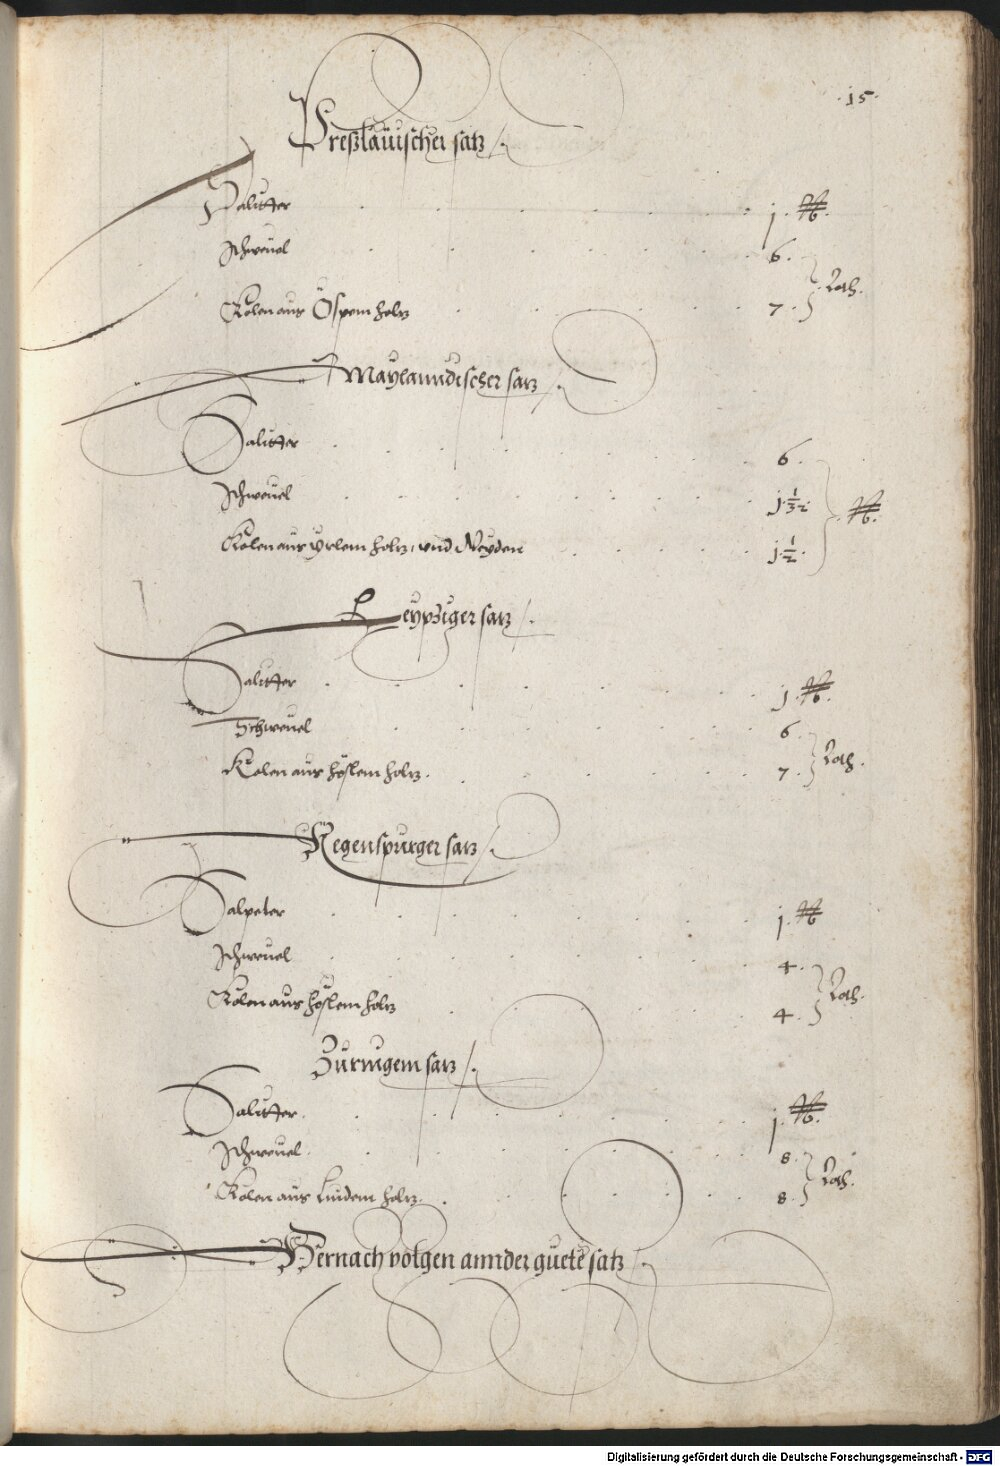 .15.
Preßlauischer satz
Salitter . . . . . . . j. ℔.
Schweuel . . . . . . . 6.
Loth.
Kolen aus Öspem holtz . . . . . 7.
Maylanndischer satz
Salitter . . . . . . . 6.
Schweuel . . . . . . . j ½. ℔.
Kolen aus Erlem holtz, vnd Weyden . . . . j ½.
Leypziger satz
Salitter . . . . . . . j. ℔.
Schweuel . . . . . . . 6.
Loth.
Kolen aus höslem holtz . . . . . 7.
Regenspurger satz
Salpeter . . . . . . . j. ℔
Schweuel . . . . . . . 4.
Loth.
Kolen aus höslem holtz . . . . . 4.
Salitter . . . . . . . j. ℔.
Schweuel . . . . . . . 8.
Loth.
Kolen aus Lindem holtz . . . . . 8.
Hernach volgen annder guete satz
Digitalisierung gefördert durch die Deutsche Forschungsgemeinschaft - DFG